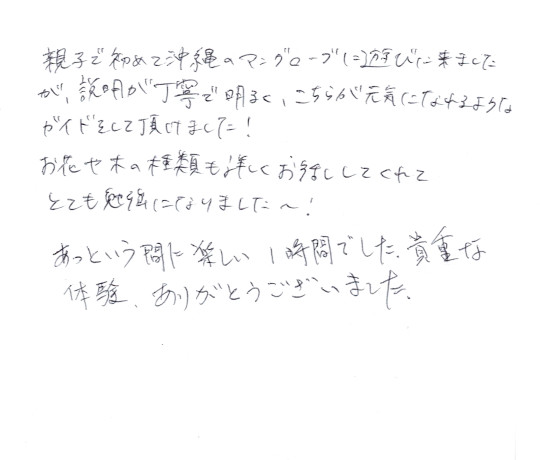 親子で初めて沖縄のマングローブに遊びに来ました
が、説明が丁寧で明るく、こちらが元気になれるような
ガイドをして頂けました!
お花や木の種類も詳しくお話ししてくれて
とても勉強になりました〜!
あっという間に楽しい1時間でした。貴重な
体験、ありがとうございました。